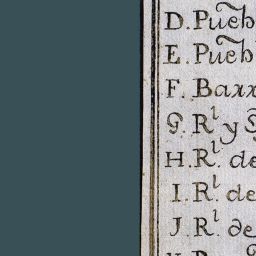 D. Pueb
E. Pueb
F. Barr
G. R.l y S
H. R.l de
I. R.l de
J. R.l de